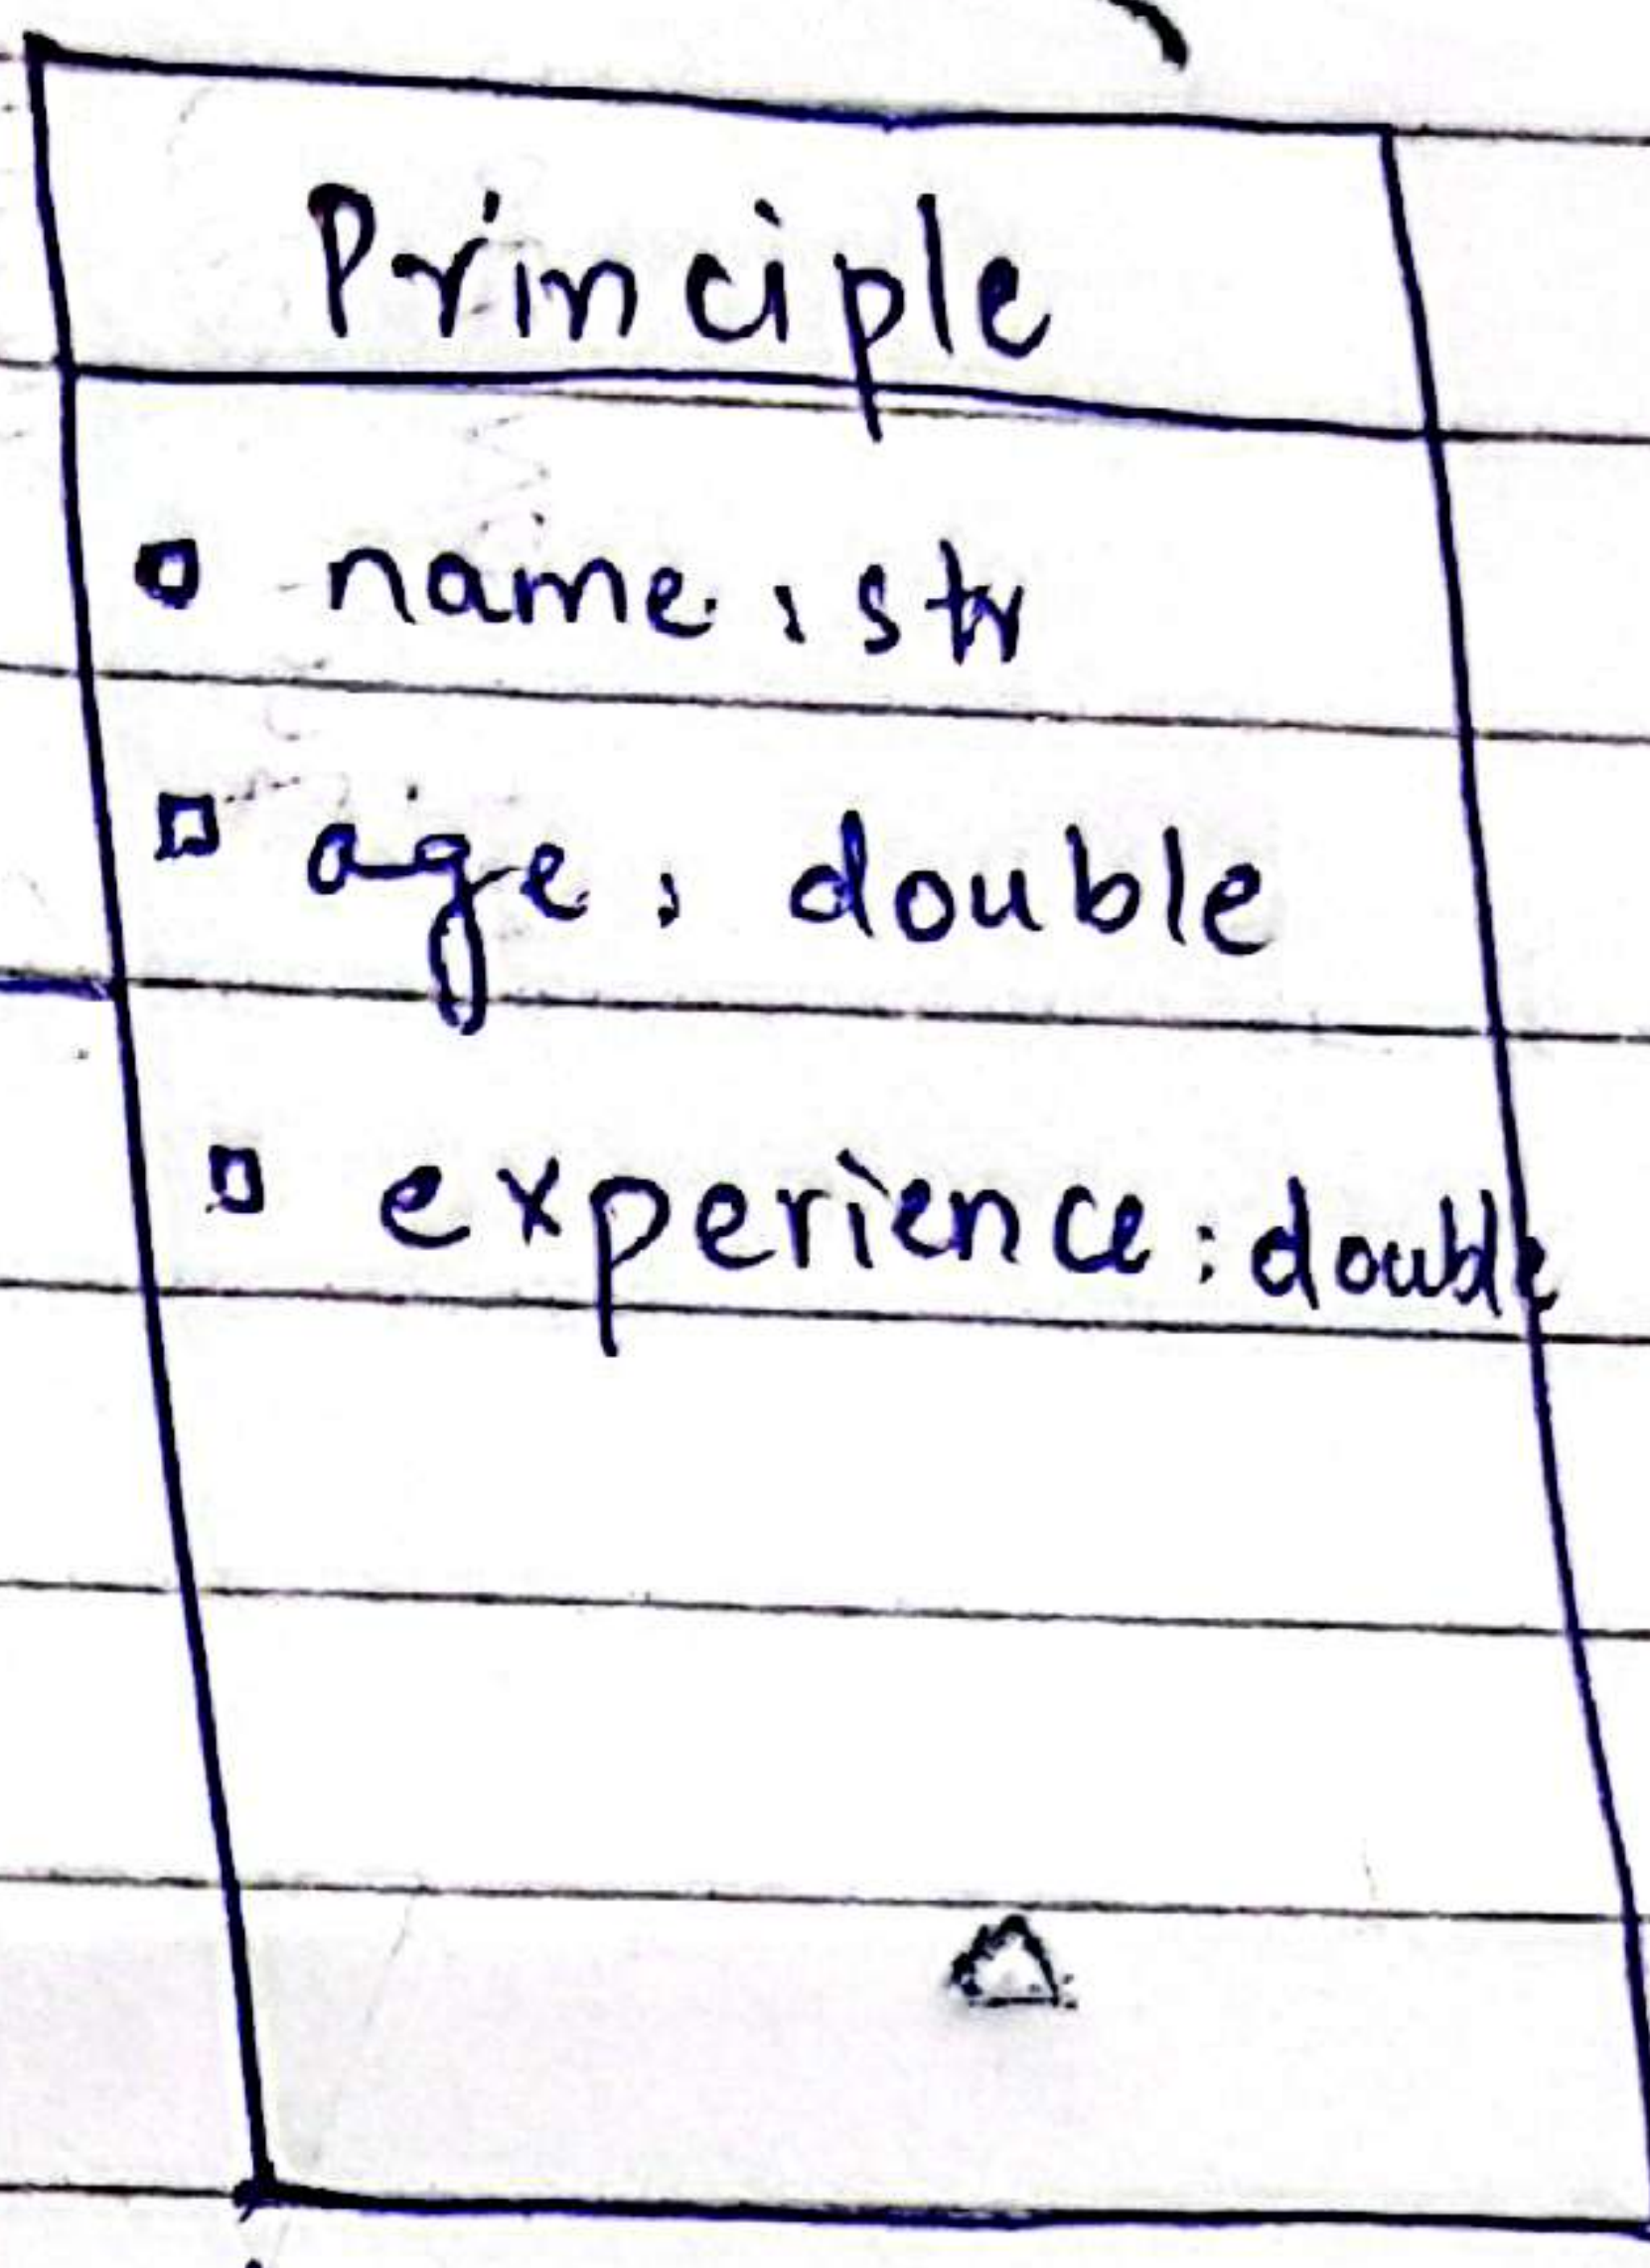 Principle
name : str
age : double
experience : double